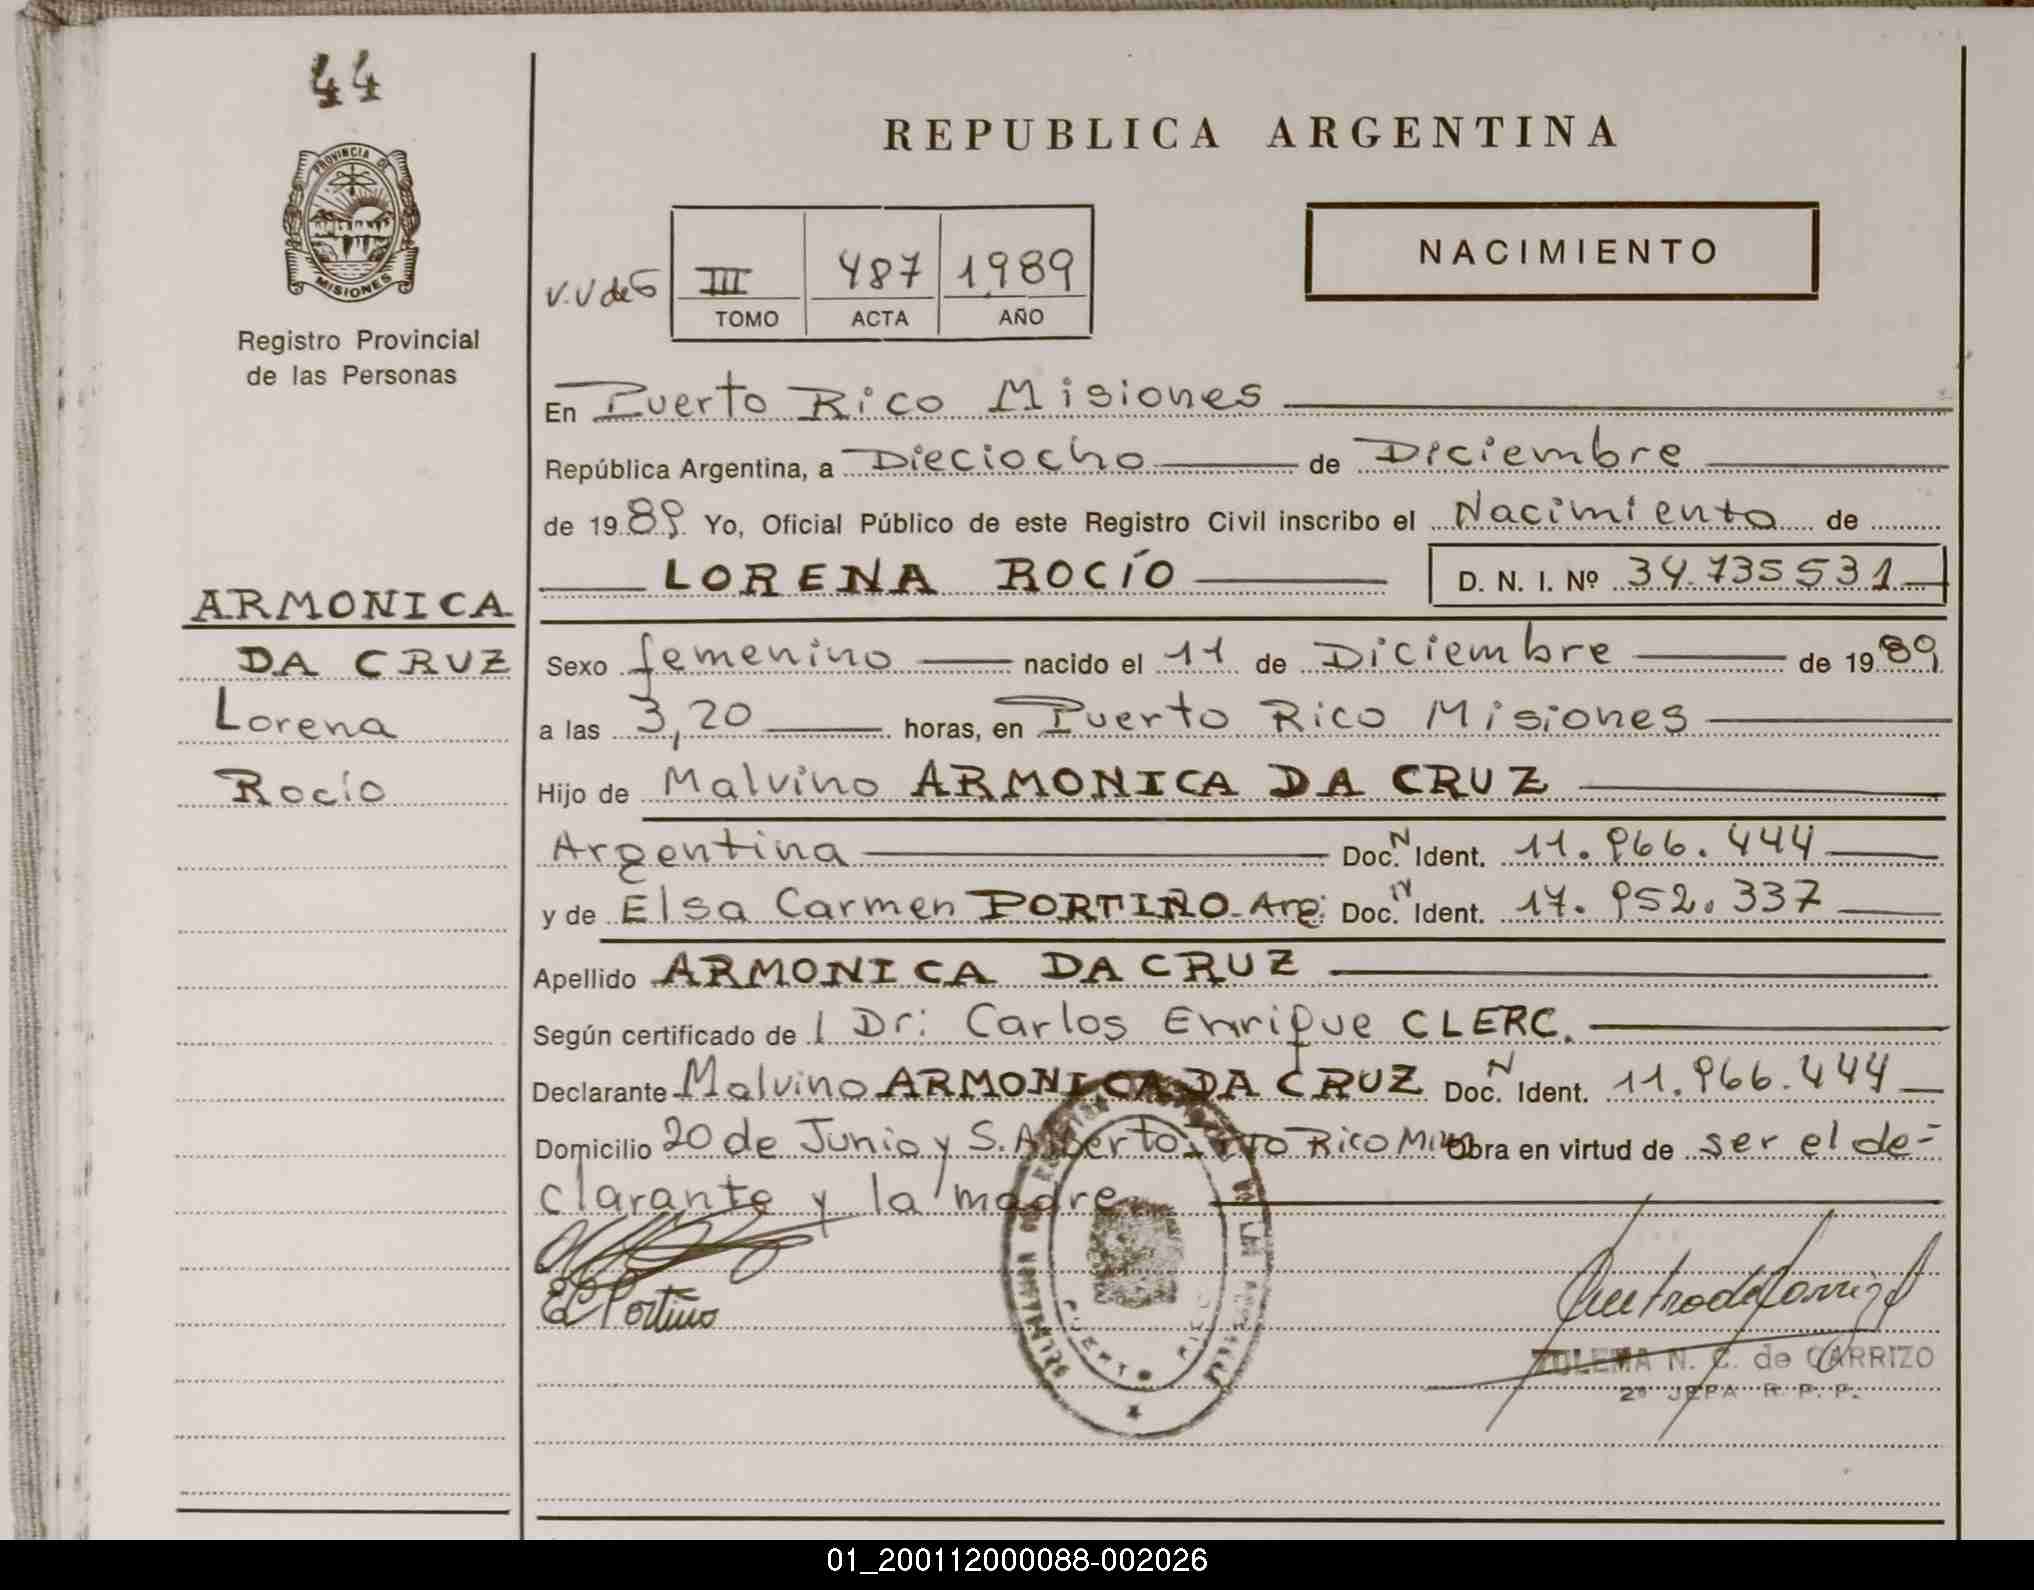 44
PROVINCIA DE
MISIONES
Registro Provincial
de las Personas
ARMONICA
DA CRUZ
Lorena
Rocío
REPUBLICA ARGENTINA
NACIMIENTO
III 487 1989
TOMO ACTA AÑO
En Puerto Rico Misiones
República Argentina, a Dieciocho de Diciembre
de 1989 Yo, Oficial Público de este Registro Civil inscribo el Nacimiento de
LORENA ROCÍO D. N. I. Nº 34.735531
Sexo femenino nacido el 11 de Diciembre de 1989
a las 3,20 horas, en Puerto Rico Misiones
Hijo de Malvino ARMONICA DA CRUZ
Argentina Doc. N Ident. 11.966.444
y de Elsa Carmen PORTIÑO - Arg: Doc. N Ident. 17.952.337
Apellido ARMONICA DA CRUZ
Según certificado de l Dr: Carlos Enrique CLERC.
Declarante Malvino ARMONICA DA CRUZ Doc. N Ident. 11.966.444
Domicilio 20 de Junio y S. Alberto - Pto Rico Mnes Obra en virtud de ser el de-
clarante y la madre
E C Portiño
PUERTO RICO
TOLEMA N. C. de CARRIZO
2º JEFA R. P. P.
01_200112000088-002026